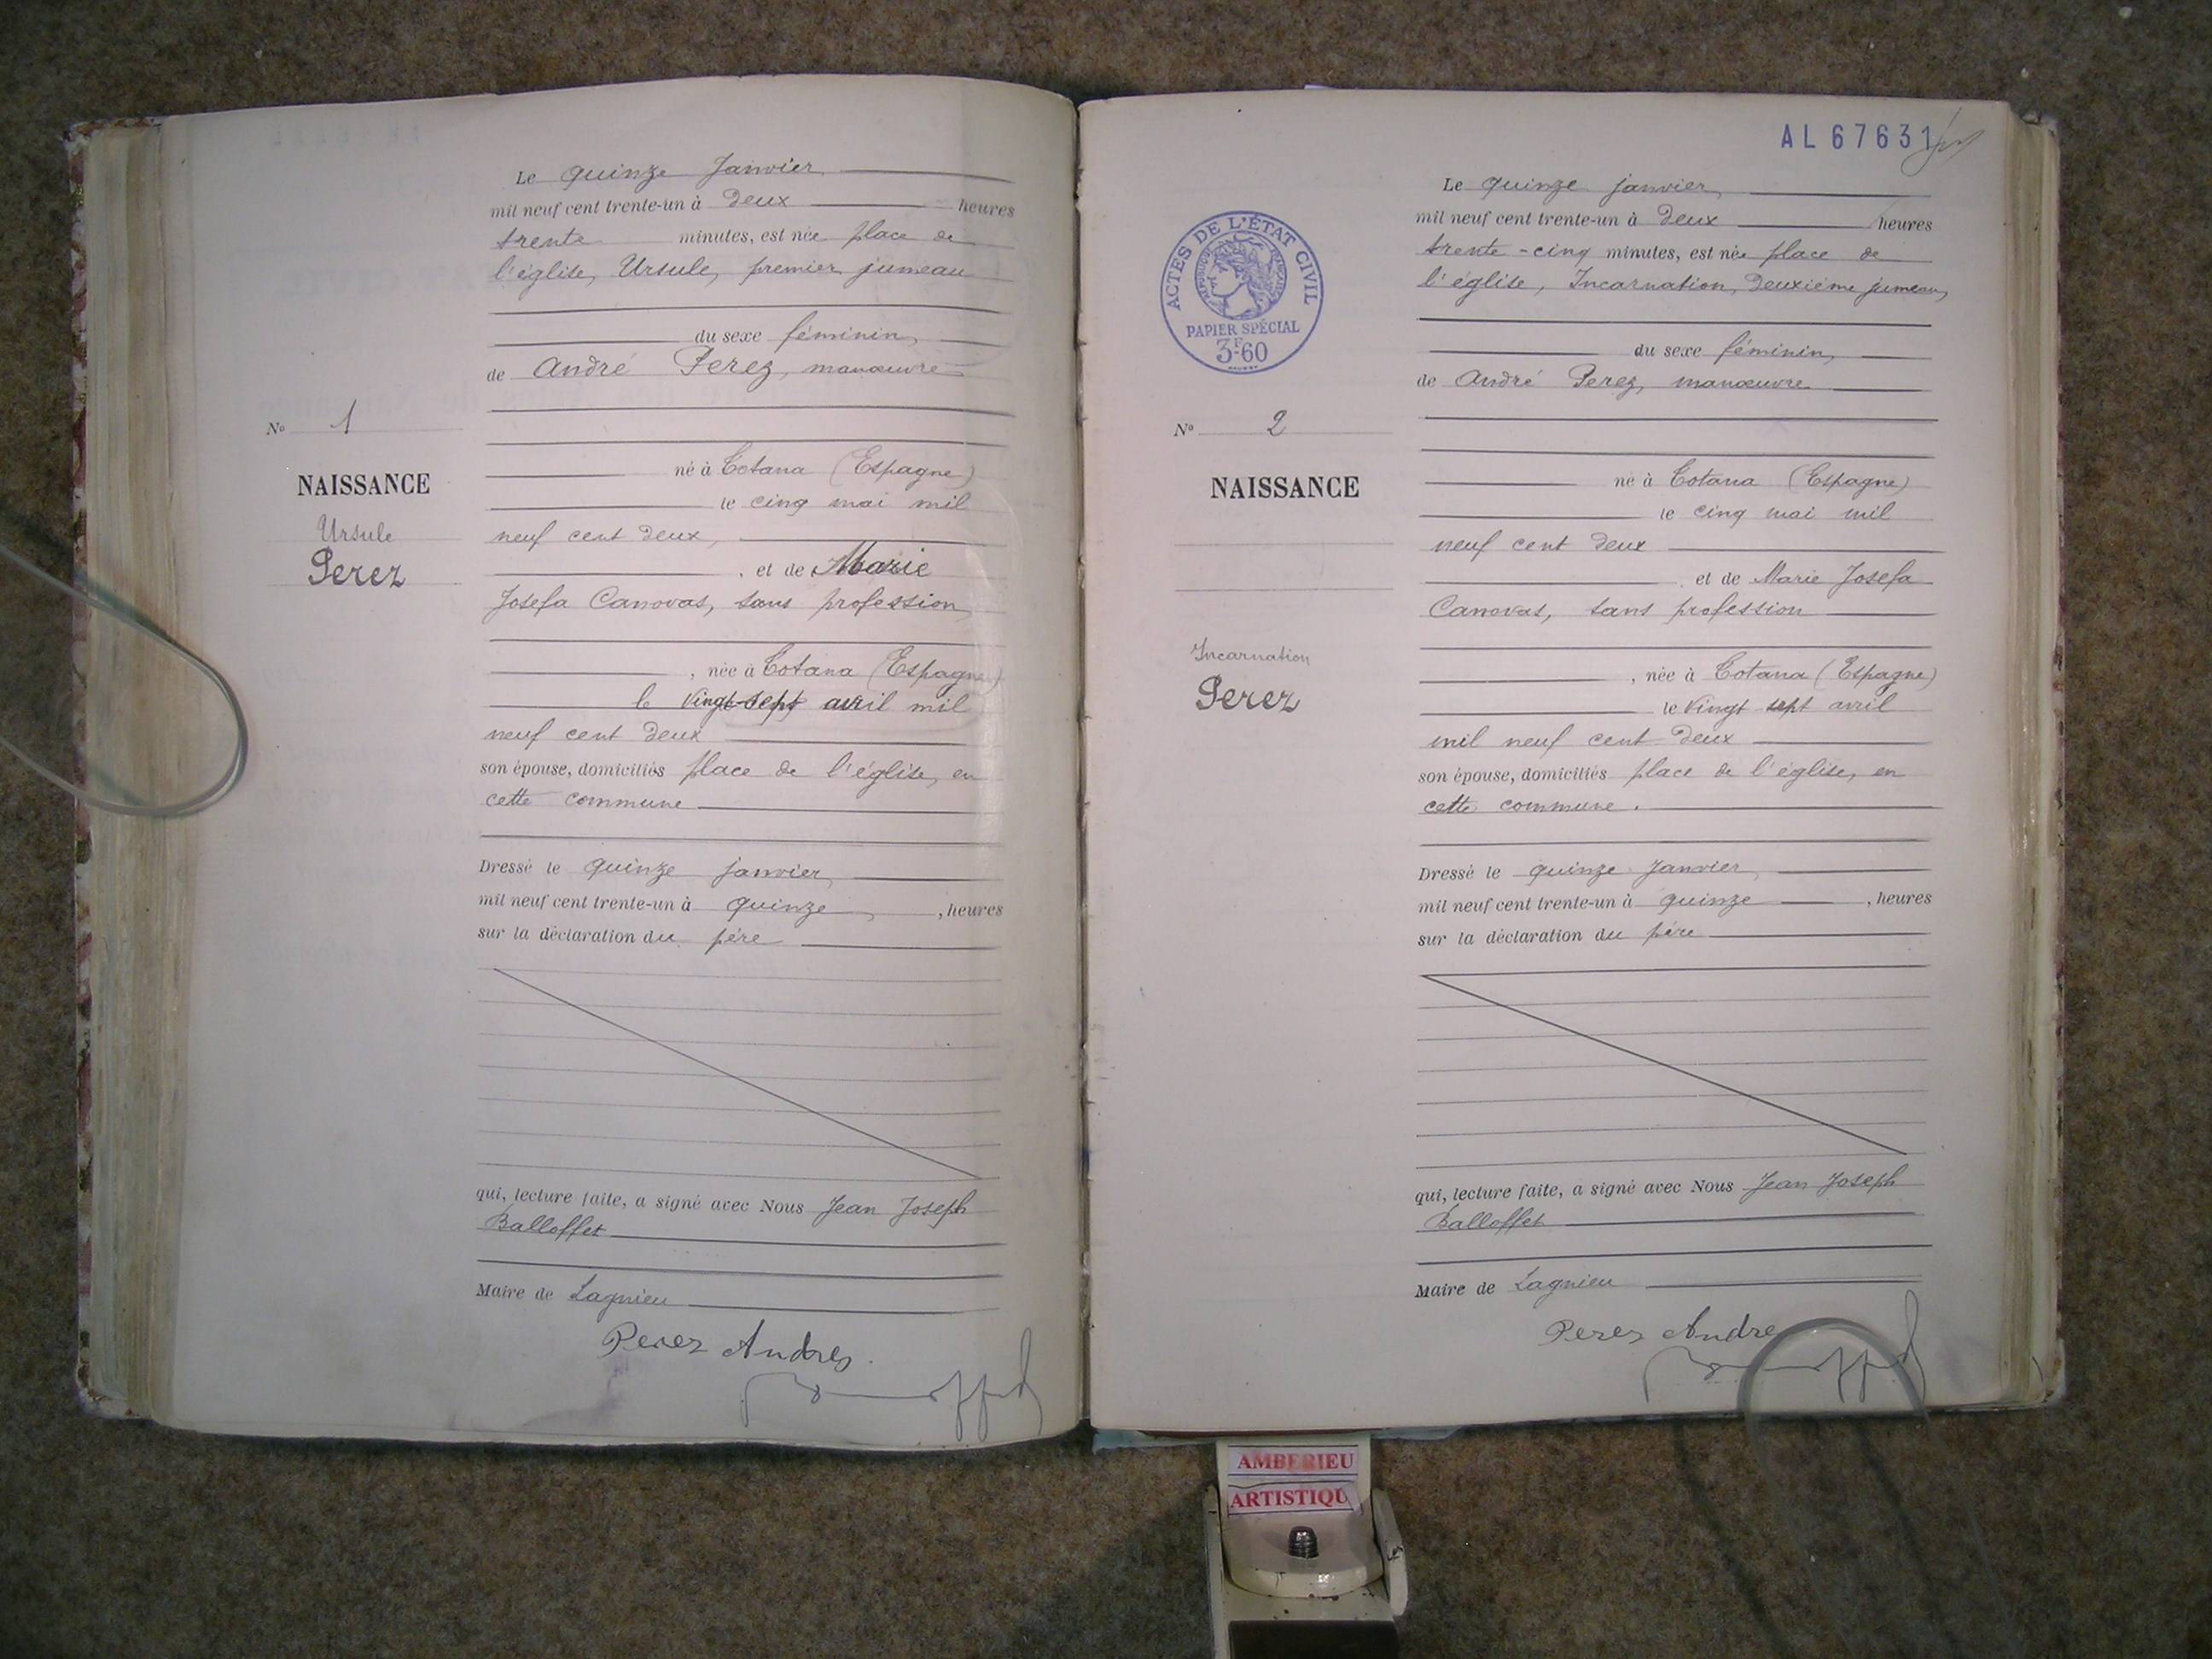 Le quinze Janvier
mil neuf cent trente-un à deux heures
trente minutes, est née place de
l'église, Ursule, premier jumeau
du sexe féminin,
de André Perez, manœuvre
No 1
né à Totana (Espagne)
NAISSANCE
le cinq mai mil
Ursule
neuf cent deux,
Perez
, et de Marie
Josefa Canovas, sans profession
, née à Totana (Espagne)
le vingt-sept avril mil
neuf cent deux
son épouse, domiciliés place de l'église, en
cette commune
Dressé le quinze janvier,
mil neuf cent trente-un à quinze, , heures
sur la déclaration du père
qui, lecture faite, a signé avec Nous Jean Joseph
Balloffet
Maire de Lagnieu
Perez Andres
AL 67631
Le quinze janvier,
mil neuf cent trente-un à deux heures
trente-cinq minutes, est née place de
l'église, Incarnation, deuxième jumeau,
ACTES DE L'ÉTAT CIVIL
RÉPUBLIQUE FRANÇAISE
PAPIER SPÉCIAL
3F60
du sexe féminin,
de André Perez, manœuvre
No 2
né à Totana (Espagne)
NAISSANCE
le cinq mai mil
neuf cent deux
et de Marie Josefa
Canovas, sans profession
Incarnation
Perez
, née à Totana (Espagne)
le vingt sept avril
mil neuf cent deux
son épouse, domiciliés place de l'église, en
cette commune.
Dressé le quinze Janvier,
mil neuf cent trente-un à quinze , heures
sur la déclaration du père
qui, lecture faite, a signé avec Nous Jean Joseph
Balloffet
Maire de Lagnieu
Perez Andre
AMBERIEU
ARTISTIQU